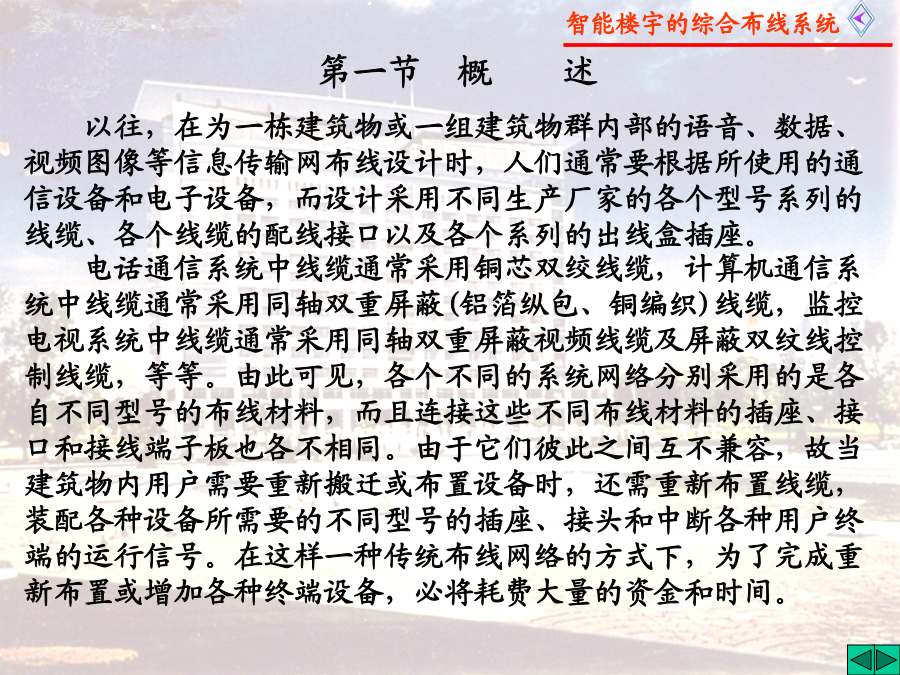 智能楼宇的综合布线系统
第一节 概 述
以往，在为一栋建筑物或一组建筑物群内部的语音、数据、
视频图像等信息传输网布线设计时，人们通常要根据所使用的通
信设备和电子设备，而设计采用不同生产厂家的各个型号系列的
线缆、各个线缆的配线接口以及各个系列的出线盒插座。
电话通信系统中线缆通常采用铜芯双绞线缆，计算机通信系
统中线缆通常采用同轴双重屏蔽(铝箔纵包、铜编织)线缆，监控
电视系统中线缆通常采用同轴双重屏蔽视频线缆及屏蔽双纹线控
制线缆，等等。由此可见，各个不同的系统网络分别采用的是各
自不同型号的布线材料，而且连接这些不同布线材料的插座、接
口和接线端子板也各不相同。由于它们彼此之间互不兼容，故当
建筑物内用户需要重新搬迁或布置设备时，还需重新布置线缆，
装配各种设备所需要的不同型号的插座、接头和中断各种用户终
端的运行信号。在这样一种传统布线网络的方式下，为了完成重
新布置或增加各种终端设备，必将耗费大量的资金和时间。